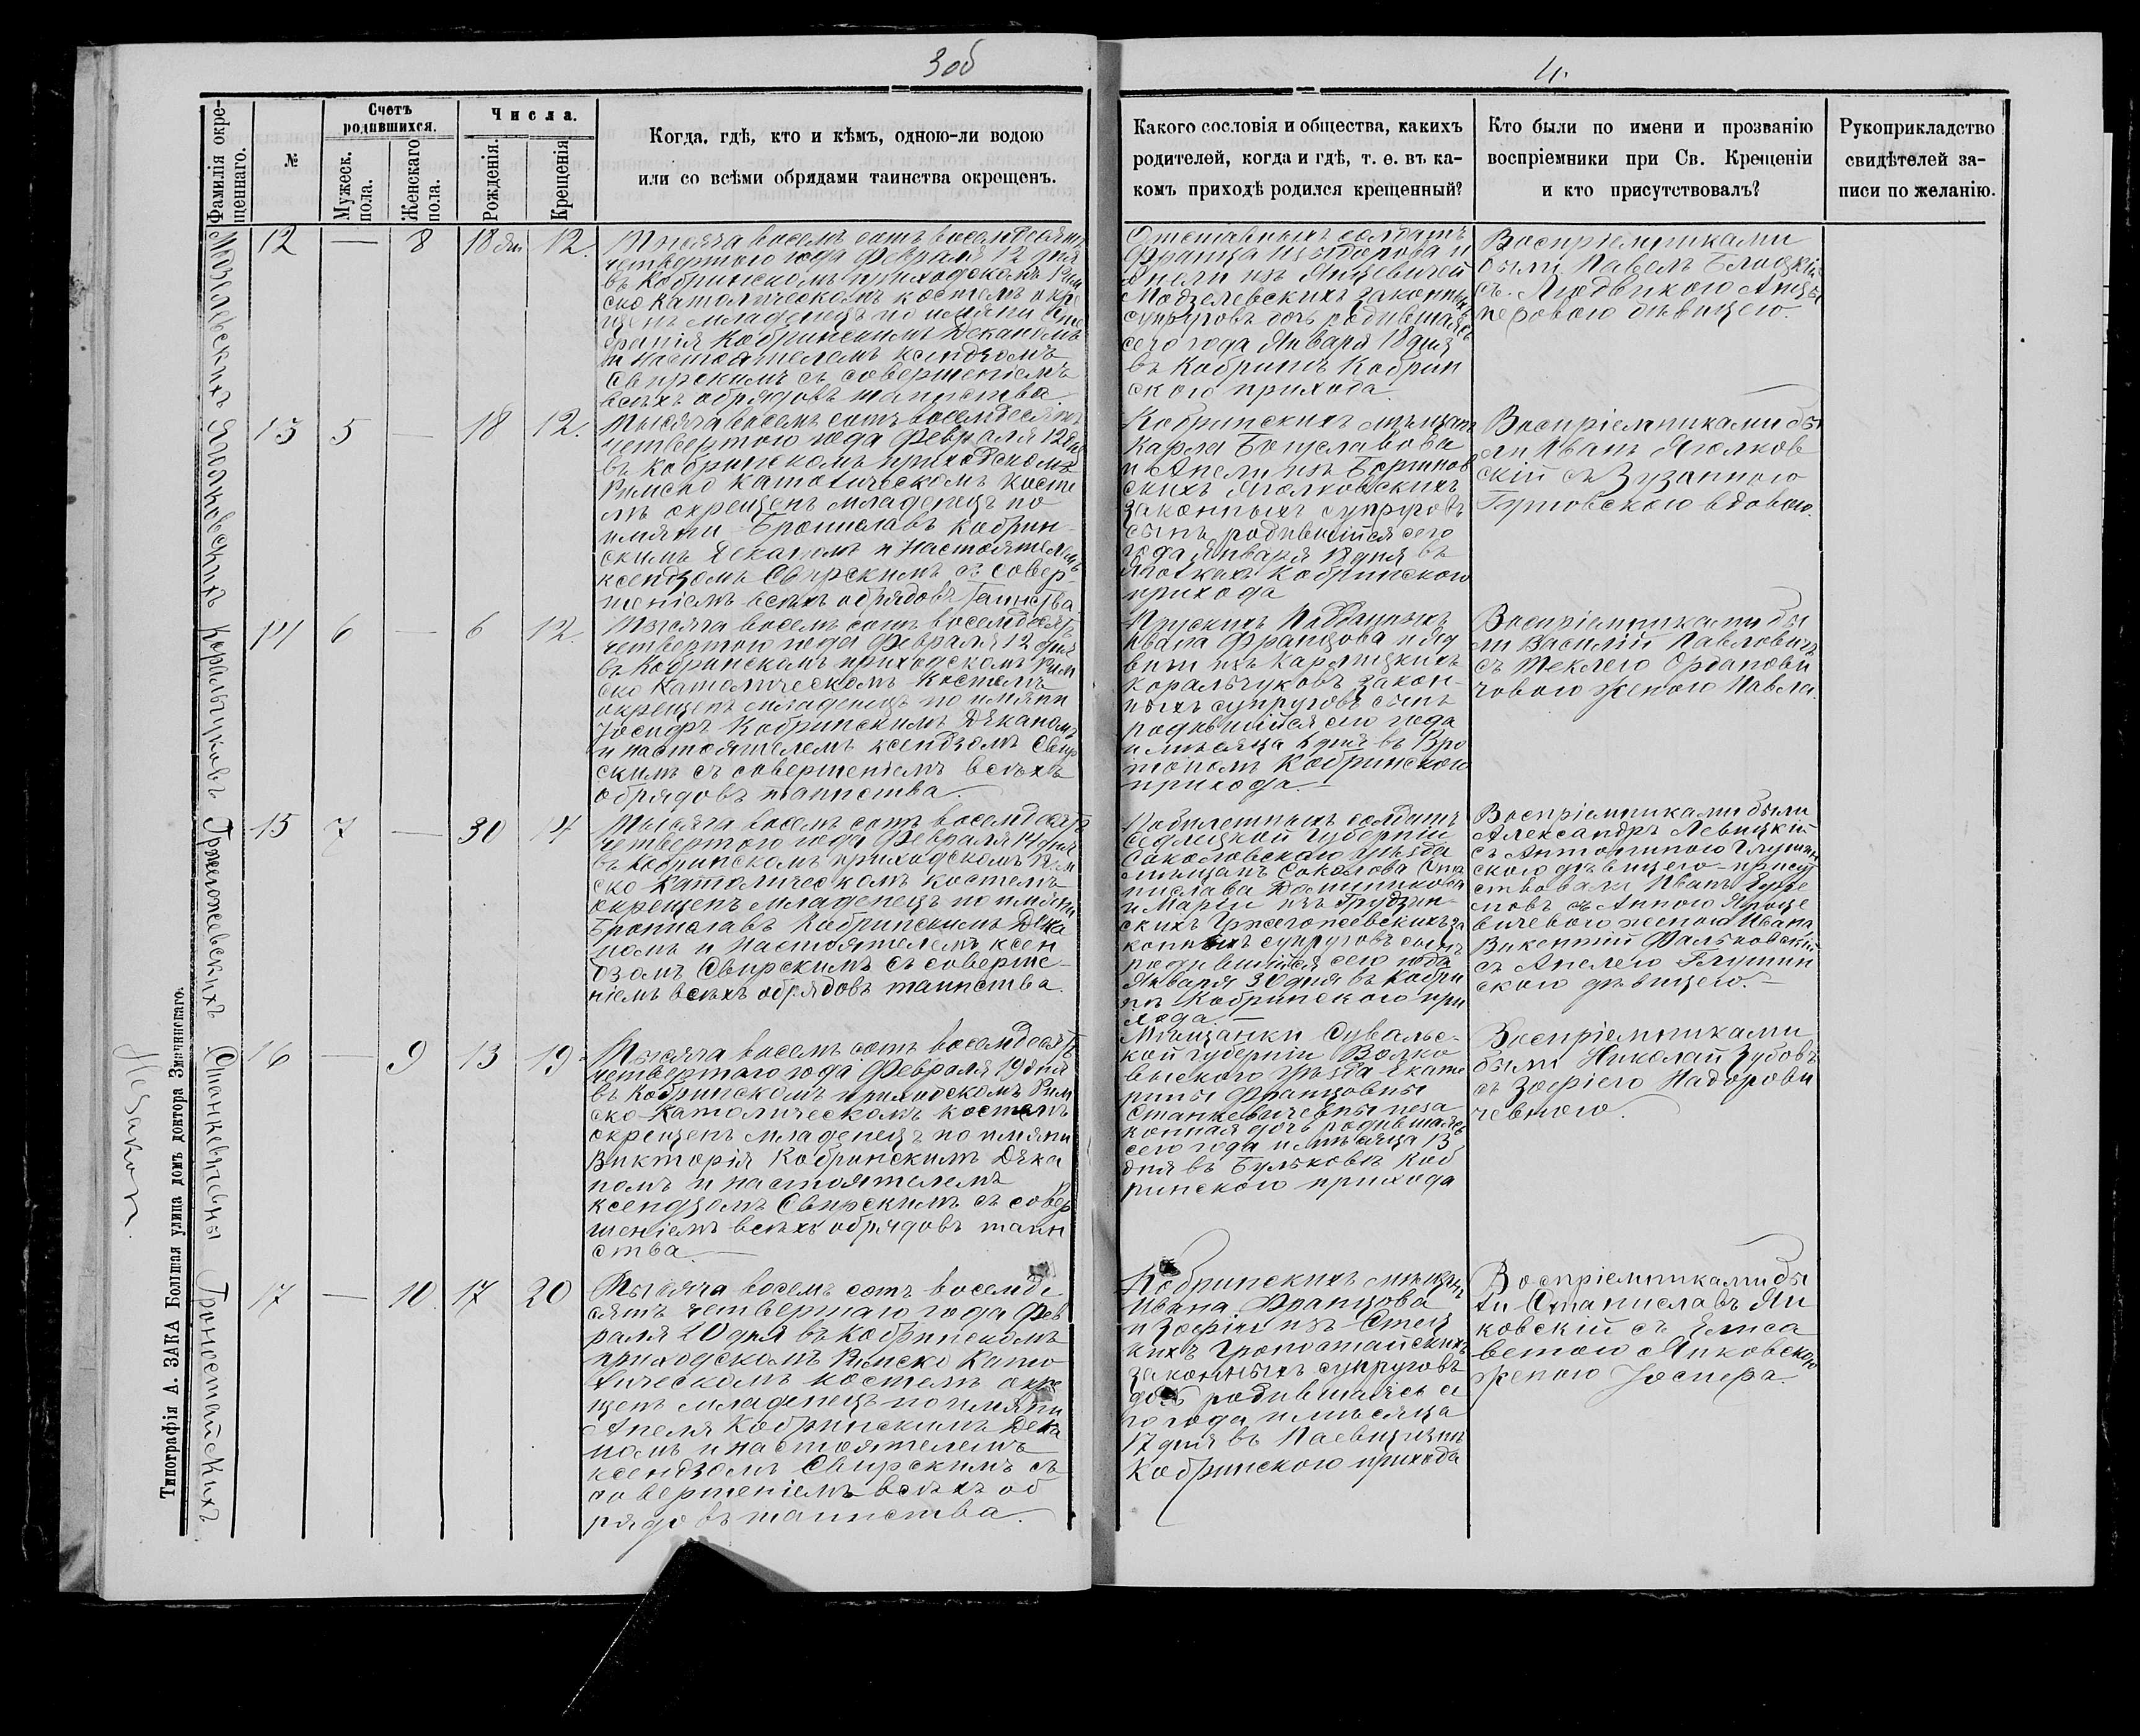 3 об
4.
Фамилія окре-
щеннаго.
№
Счетъ
родившихся.
Мужеск.
пола.
Женскаго
пола.
Числа.
Рожденія.
Крещенія
Когда, гдѣ, кто и кѣмъ, одною-ли водою
или со всѣми обрядами таинства окрещенъ.
Какого сословія и общества, какихъ
родителей, когда и гдѣ, т. е. въ ка-
комъ приходѣ родился крещенный?
Кто были по имени и прозванію
воспріемники при Св. Крещеніи
и кто присутствовалъ?
Рукоприкладство
свидѣтелей за-
писи по желанію.
12 — 8 18 12.
Тысяча восемь сотъ восемдесятъ
четвертого года Февраля 12 дня
въ Кобринскомъ приходскомъ Рим
ско Католическомъ костелѣ окре
щенъ младенецъ по имяни
Кобринскимъ Деканомъ
и настоятелемъ ксендзомъ
Свирскимъ съ совершеніемъ
всѣхъ обрядовъ таинства.
Отставныхъ солдатъ
Франца Изыдорова и
Анели изъ Янцевичей
Модзелевскихъ законныхъ
супруговъ дочь родившаяся
сего года Января 18 дня
въ Кобринѣ Кобрин
ского прихода.
Воспріемниками
были Павелъ
съ Людвикою
девицею.
Яголковскихъ
13 5 — 18 12.
Тысяча восемь сотъ восемдесятъ
четвертого года Февраля 12 дня
въ Кобринскомъ приходскомъ
Римско Католическомъ косте
лѣ окрещенъ младенецъ по
имяни Брониславъ Кобрин-
скимъ Деканомъ и настоятелемъ
ксендзомъ Свирскимъ съ совер-
шеніемъ всѣхъ обрядовъ Таинства
Кобринскихъ мѣщанъ
Карла Болеславова
и Анели изъ
Яголковскихъ
законныхъ супруговъ
сынъ родившійся сего
года Января 18 дня въ
Кобринского
прихода
Воспріемниками бы
ли Иванъ Яголков
скій съ Зузанною
вдовою.
Коральчуковъ
14 6 — 6 12.
Тысяча восемь сотъ восемдесятъ
четвертого года Февраля 12 дня
въ Кобринскомъ приходскомъ Рим
ско Католическомъ костелѣ
окрещенъ младенецъ по имяни
Іосифъ Кобринскимъ Деканомъ
и настоятелемъ ксендзомъ Свир
скимъ съ совершеніемъ всѣхъ
обрядовъ таинства.
Прускихъ Подданыхъ
Ивана Францова и Яд
виги изъ Карлицкихъ
Коральчуковъ закон-
ныхъ супруговъ сынъ
родившійся сего года
и мѣсяца 6 дня въ
Кобринского
прихода.
Воспріемниками бы
ли Василій Павловичъ
съ Теклею
женою Павла.
Гржегожевскихъ
15 7 — 30 14
Тысяча восемь сотъ восемдесятъ
четвертого года Февраля 14 дня
въ Кобринскомъ приходскомъ Рим
ско Католическомъ костелѣ
окрещенъ младенецъ по имяни
Брониславъ Кобринскимъ Дека
номъ и настоятелемъ ксен
дзомъ Свирскимъ съ соверше-
ніемъ всѣхъ обрядовъ таинства.
солдатъ
Седлецкой Губерніи
Соколовскаго уѣзда
мѣщанъ Соколова Ста
нислава Доминикова
и Маріи изъ Грудзин-
скихъ Гржегожевскихъ за
конныхъ супруговъ сынъ
родившійся сего года
Января 30 дня въ Кобри
нѣ Кобринского при
хода —
Воспріемниками были
Александръ Левицкій
съ Антониною
девицею — присут
ствовали Иванъ
съ Анною
женою Ивана,
Викентій Фальковскій
съ Анелею Глушин
ского девицею. —
Станкевичевны
Незакон.
16 — 9 13 19
Тысяча восемь сотъ восемдесятъ
четвертаго года Февраля 19 дня
въ Кобринскомъ приходскомъ Рим
ско-Католическомъ костелѣ
окрещенъ младенецъ по имяни
Викторія Кобринскимъ Дека
номъ и настоятелемъ
ксендзомъ Свирскимъ съ совер
шеніемъ всѣхъ обрядовъ таин
ства —
Мѣщанки Сувальс-
кой губерніи Волко
выского уѣзда Екате
рины Францовны
Станкевичевны неза
конная дочь родившаяся
сего года и мѣсяца 13
дня въ Бульковѣ Коб
ринского прихода
Воспріемниками
были Николай Зубовъ
съ Зофіею
Гроностайскихъ
17 — 10. 17 20
Тысяча восемь сотъ восемде
сятъ четвертаго года Фев
раля 20 дня въ Кобринскомъ
приходскомъ Римско Като
лическомъ костелѣ окре
щенъ младенецъ по имяни
Анеля Кобринскимъ Дека
номъ и настоятелемъ
ксендзомъ Свирскимъ съ
совершеніемъ всѣхъ об
рядовъ таинства.
Кобринскихъ мѣщанъ
Ивана Францова
и Зофіи изъ Стец
кихъ Гроностайскихъ
законныхъ супруговъ
дочь родившаяся се
го года и мѣсяца
17 дня въ
Кобринского прихода
Воспріемниками бы
ли Станиславъ Ян
ковскій съ Елиса
ветою Янковскою
женою Іосифа.
Типографія А. ЗАКА Большая улица домъ доктора Змачинскаго.